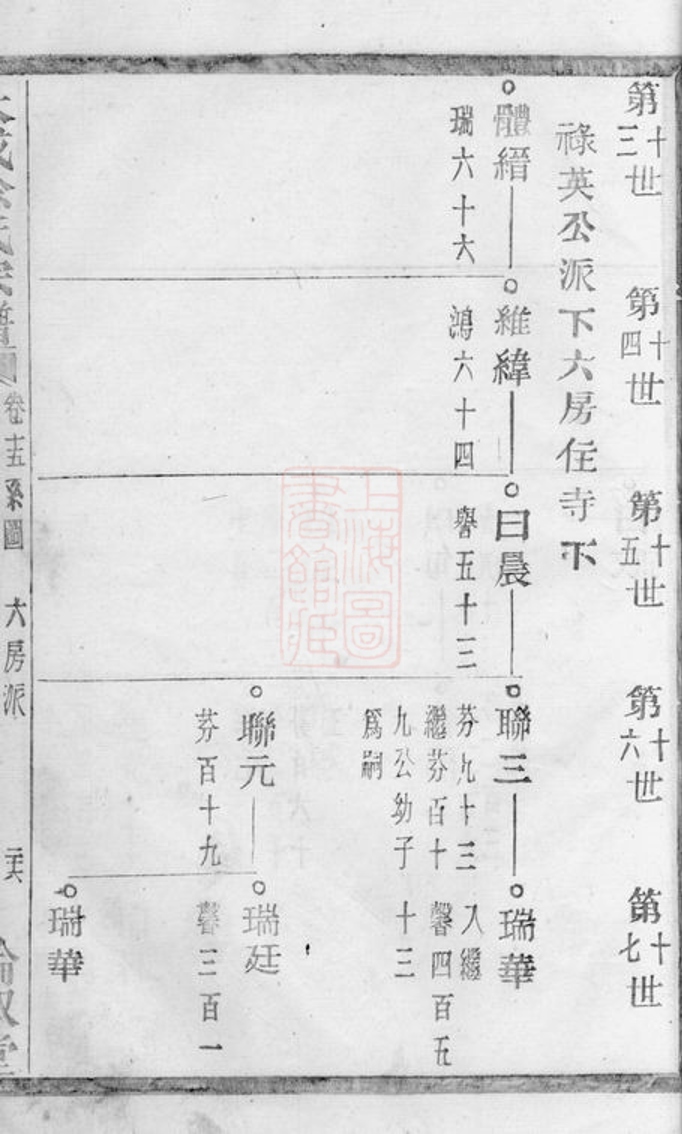 第十三世
第十四世
第十五世
第十六世
第十七世
祿英公派下六房住寺下
體縉
瑞六十六
維緯
鴻六十四
曰晨
譽五十三
聯三
芬九十三
繼芬百十
九公幼子
爲嗣
瑞華
入繼
馨四百五
十三
聯元
芬百十九
瑞廷
馨三百一
瑞華
卷十五系圖
六房派
上海圖書館藏